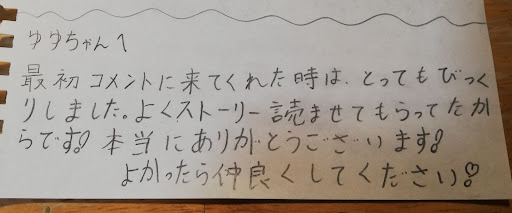 ゆゆちゃんへ
最初コメントに来てくれた時は、とってもびっく
りしました。よくストーリー読ませてもらってたか
らです!本当にありがとうございます!
よかったら仲良くしてください♡!